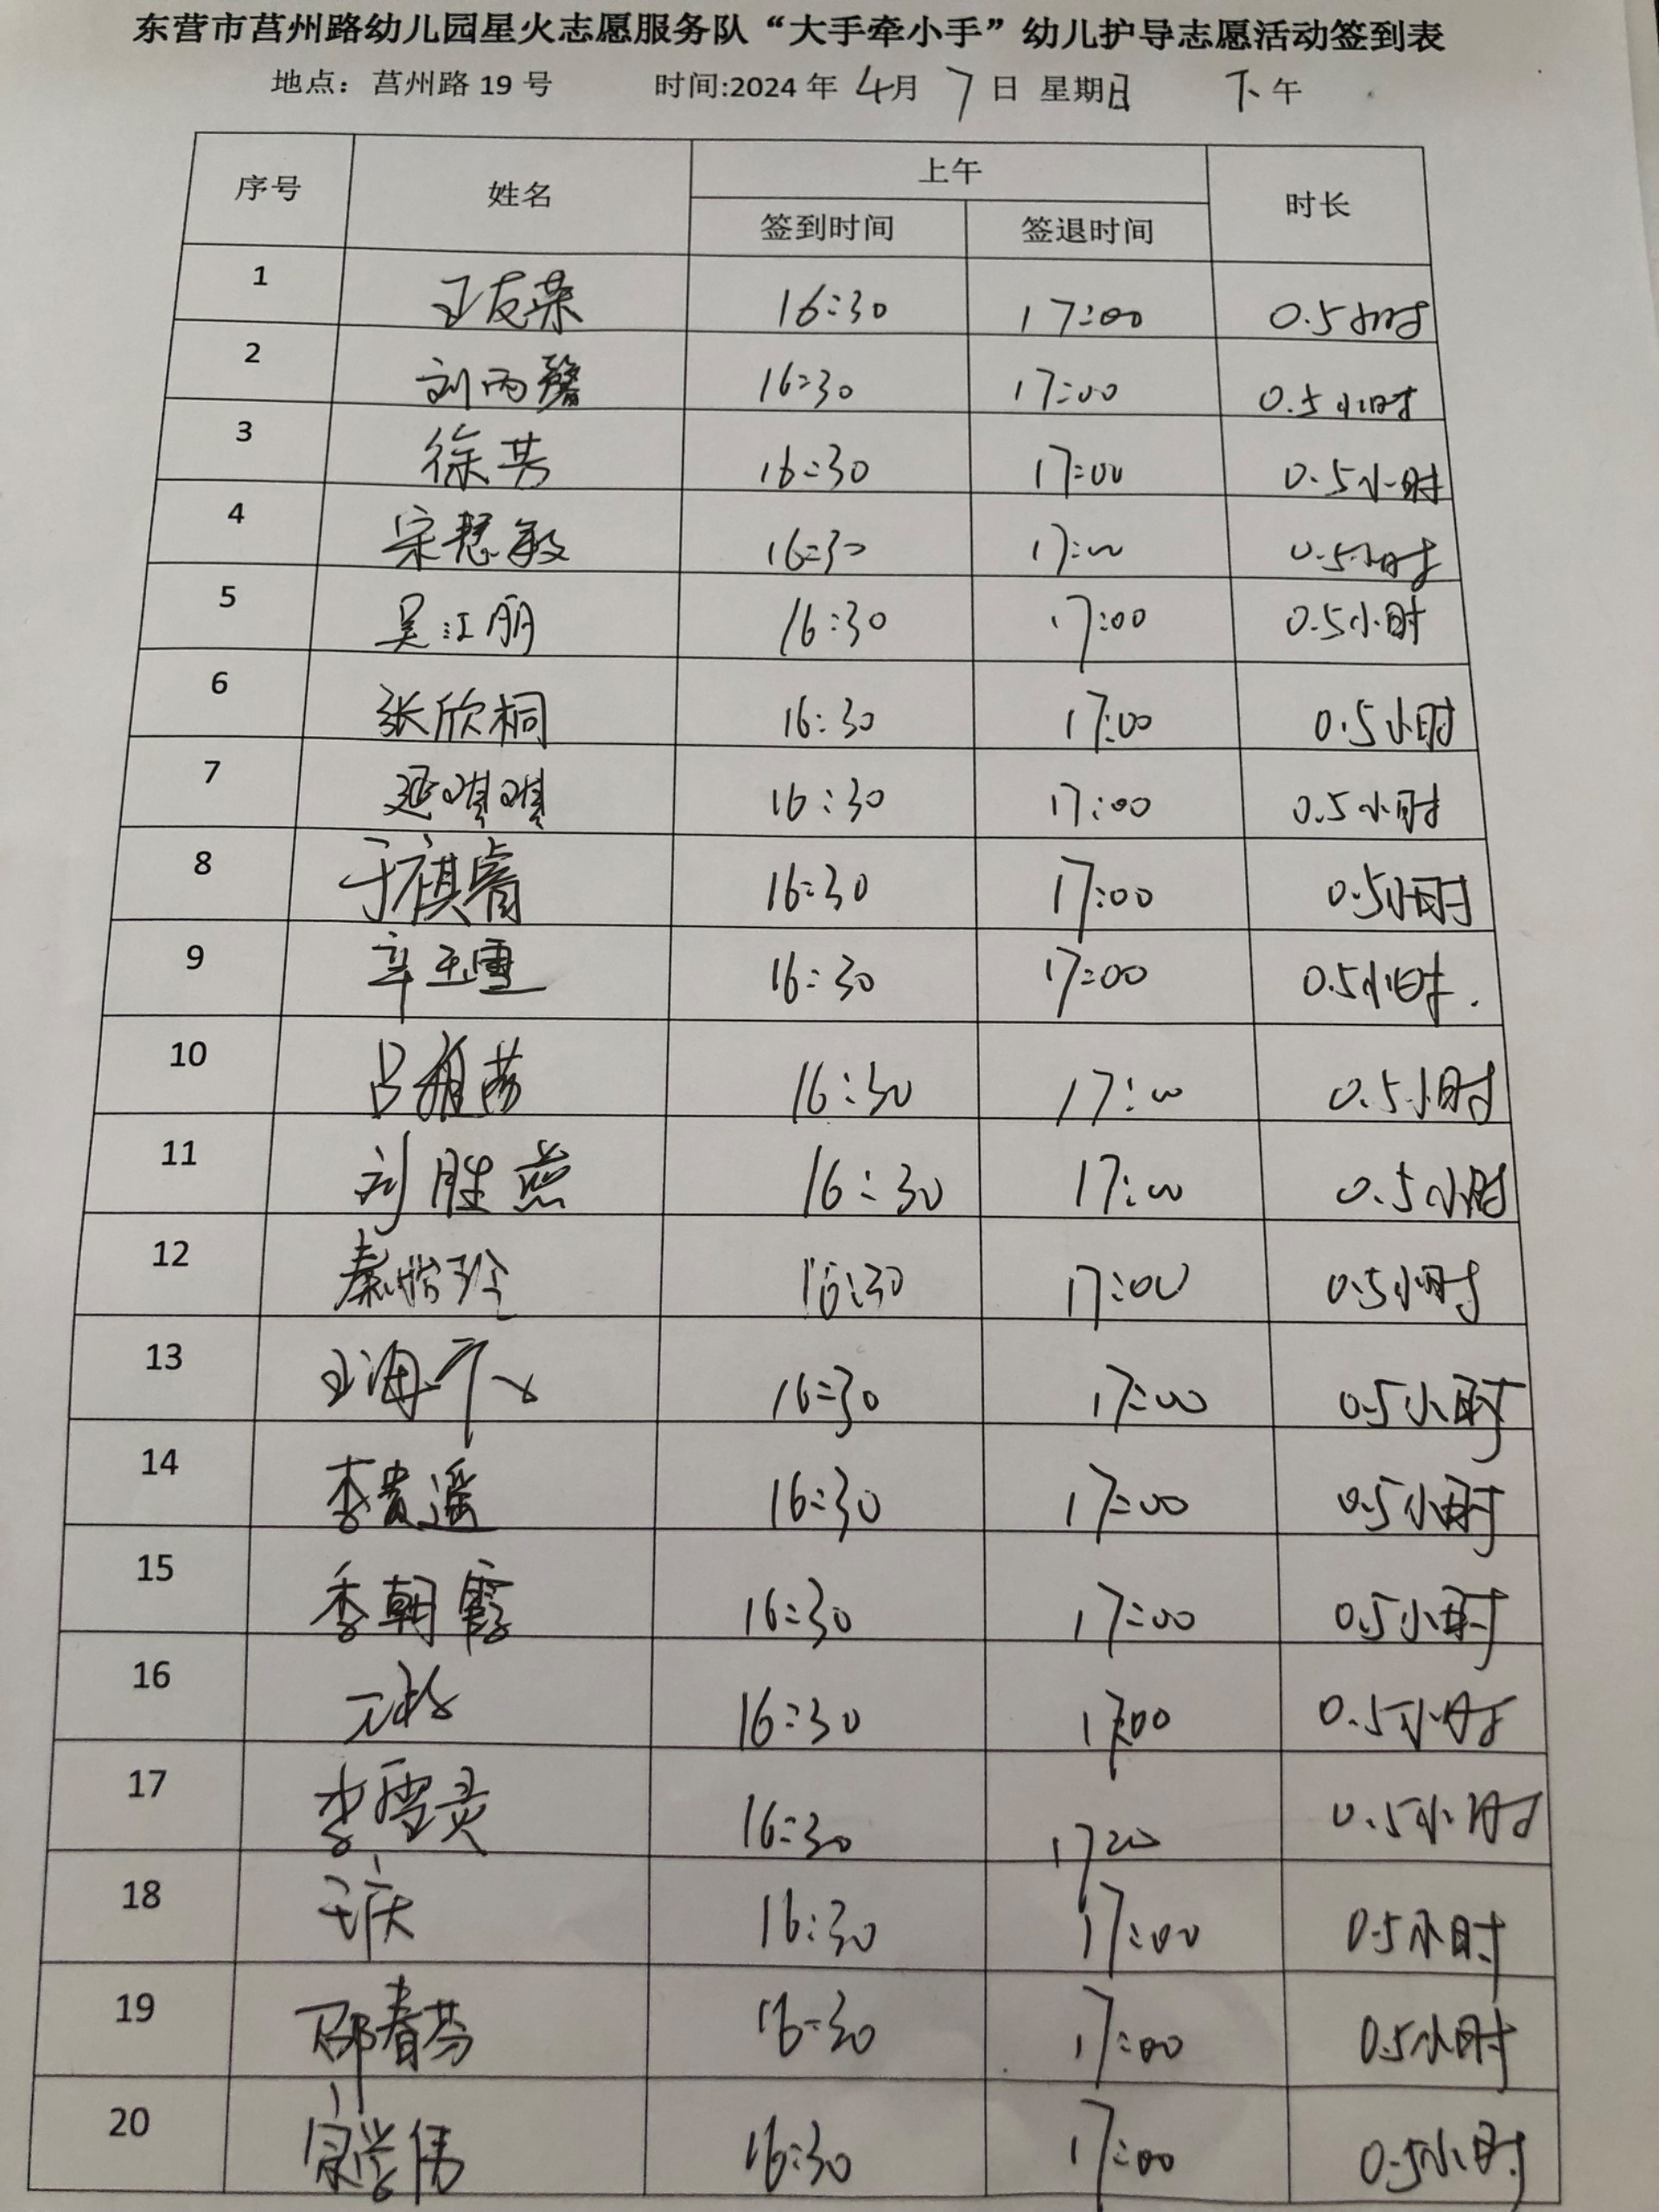 东营市莒州路幼儿园星火志愿服务队“大手牵小手”幼儿护导志愿活动签到表
地点：莒州路 19 号 时间:2024 年 4月 7 日 星期日 下午
序号 姓名 上午 时长
签到时间 签退时间
1 王友荣 16:30 17:00 0.5小时
2 刘丙 16:30 17:00 0.5小时
3 徐芳 16:30 17:00 0.5小时
4 宋慧敏 16:30 17:00 0.5小时
5 吴江朋 16:30 17:00 0.5小时
6 张欣桐 16:30 17:00 0.5小时
7 延琪琪 16:30 17:00 0.5小时
8 于祺睿 16:30 17:00 0.5小时
9 辛玉雪 16:30 17:00 0.5小时.
10 吕雅茹 16:30 17:00 0.5小时
11 刘胜燕 16:30 17:00 0.5小时
12 秦怡玲 16:30 17:00 0.5小时
13 王海 16:30 17:00 0.5小时
14 李贵遥 16:30 17:00 0.5小时
15 季朝霞 16:30 17:00 0.5小时
16 16:30 17:00 0.5小时
17 李雪灵 16:30 17 0.5小时
18 于庆 16:30 17:00 0.5小时
19 邵春芬 16:30 17:00 0.5小时
20 伟 16:30 17:00 0.5小时